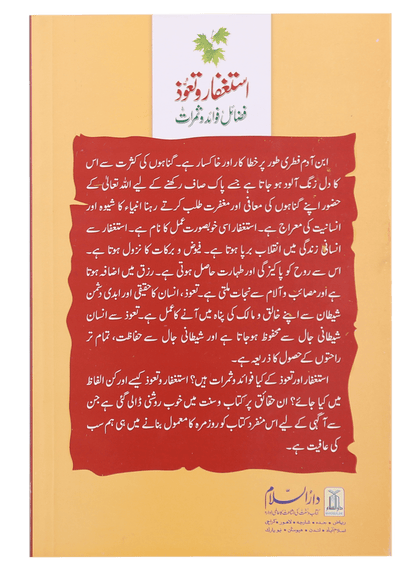 استغفار و تعوّذ
فضائل فوائد و ثمرات
ابن آدم فطری طور پر خطا کار اور خاکسار ہے۔ گناہوں کی کثرت سے اس
کا دل زنگ آلود ہو جاتا ہے جسے پاک صاف رکھنے کے لیے اللہ تعالیٰ کے
حضور اپنے گناہوں کی معافی اور مغفرت طلب کرتے رہنا انبیاء کا شیوہ اور
انسانیت کی معراج ہے۔ استغفار اسی خوبصورت عمل کا نام ہے۔ استغفار سے
انسانی زندگی میں انقلاب برپا ہوتا ہے۔ فیوض و برکات کا نزول ہوتا ہے۔
اس سے روح کو پاکیزگی اور طہارت حاصل ہوتی ہے۔ رزق میں اضافہ ہوتا
ہے اور مصائب و آلام سے نجات ملتی ہے۔ تعوذ، انسان کا حقیقی اور ابدی دشمن
شیطان سے اپنے خالق و مالک کی پناہ میں آنے کا عمل ہے۔ تعوذ سے انسان
شیطانی جال سے محفوظ ہو جاتا ہے اور شیطانی جال سے حفاظت، تمام تر
راحتوں کے حصول کا ذریعہ ہے۔
استغفار اور تعوذ کے کیا فوائد و ثمرات ہیں؟ استغفار و تعوذ کیسے اور کن الفاظ
میں کیا جائے؟ ان حقائق پر کتاب و سنت میں خوب روشنی ڈالی گئی ہے جن
سے آگہی کے لیے اس منفرد کتاب کو روزمرہ کا معمول بنانے میں ہی ہم سب
کی عافیت ہے۔
دارالسلام
کتاب و سنت کی اشاعت کا عالمی ادارہ
ریاض • جدہ • شارجہ • لاہور • کراچی
اسلام آباد • لندن • ہیوسٹن • نیویارک